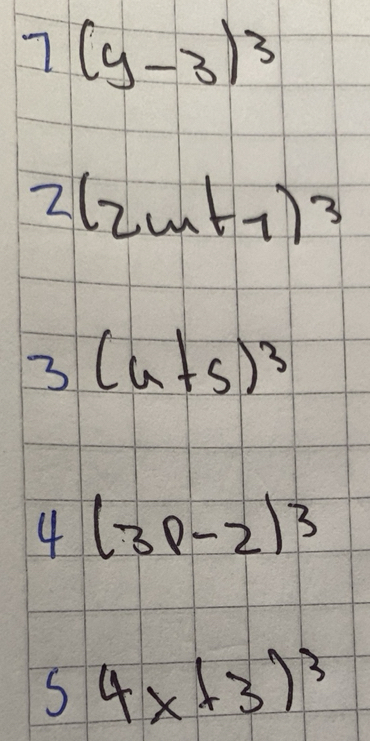 1 (y-3)³
2 (2m+1)³
3 (a+5)³
4 (3p-2)³
5 4x+3)³